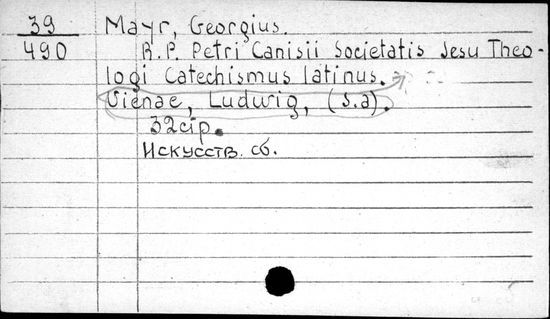 39 Mayr, Georgius.
490 R.P. Petri Canisii Societatis Jesu Theo-
logi Catechismus latinus.
Vienae, Ludwig, (s.a).
32 стр.
Искусств. сб.